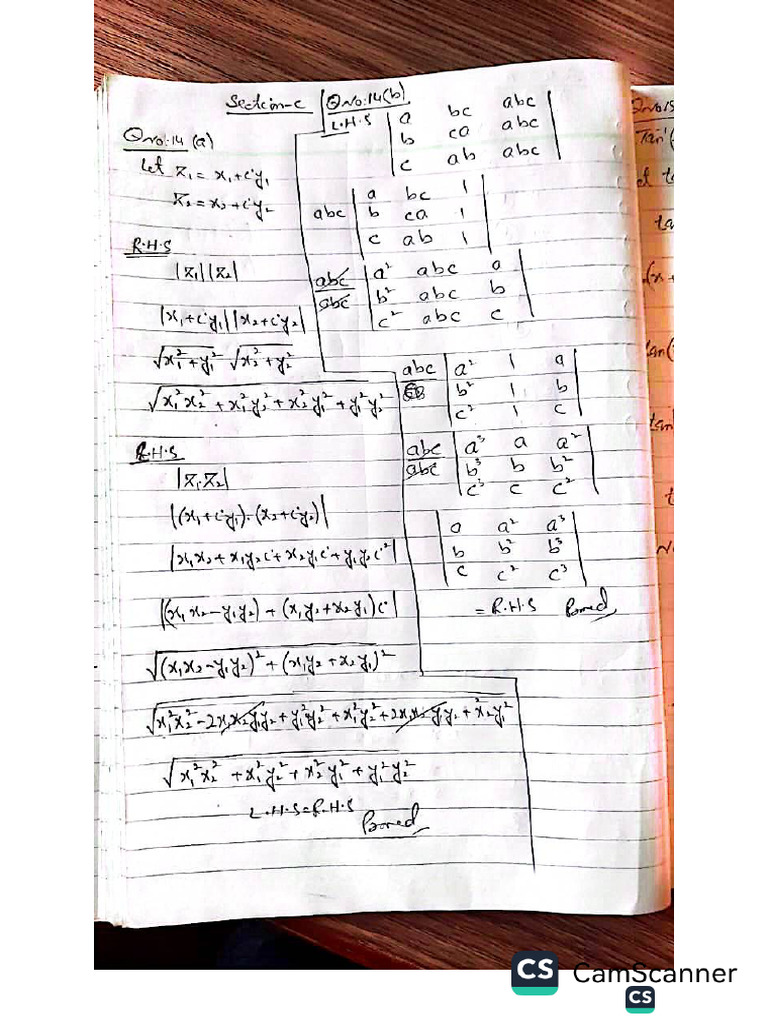 Section-C
Q No:14 (a)
Let z₁ = x₁+iy₁
z₂ = x₂+iy₂
R.H.S
|z₁||z₂|
|x₁+iy₁||x₂+iy₂|
√(x₁²+y₁²) √(x₂²+y₂²)
√(x₁²x₂² + x₁²y₂² + x₂²y₁² + y₁²y₂²)
L.H.S
|z₁.z₂|
|(x₁+iy₁).(x₂+iy₂)|
|x₁x₂+x₁y₂i+x₂y₁i+y₁y₂i²|
|(x₁x₂-y₁y₂)+(x₁y₂+x₂y₁)i|
√((x₁x₂-y₁y₂)²+(x₁y₂+x₂y₁)²)
√(x₁²x₂²-2x₁x₂y₁y₂+y₁²y₂²+x₁²y₂²+2x₁x₂y₁y₂+x₂²y₁²)
√(x₁²x₂²+x₁²y₂²+x₂²y₁²+y₁²y₂²)
L.H.S=R.H.S
Q No:14(b)
L.H.S
| a bc abc |
| b ca abc |
| c ab abc |
| a bc 1 |
abc | b ca 1 |
| c ab 1 |
abc/abc | a² abc a |
| b² abc b |
| c² abc c |
abc | a² 1 a |
| b² 1 b |
| c² 1 c |
abc/abc | a³ a a² |
| b³ b b² |
| c³ c c² |
| a a² a³ |
| b b² b³ |
| c c² c³ |
= R.H.S
CS CamScanner
CS